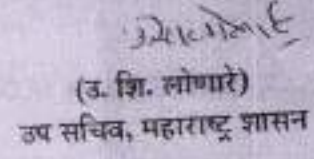 (उ. शि. लोणारे)
उप सचिव, महाराष्ट्र शासन